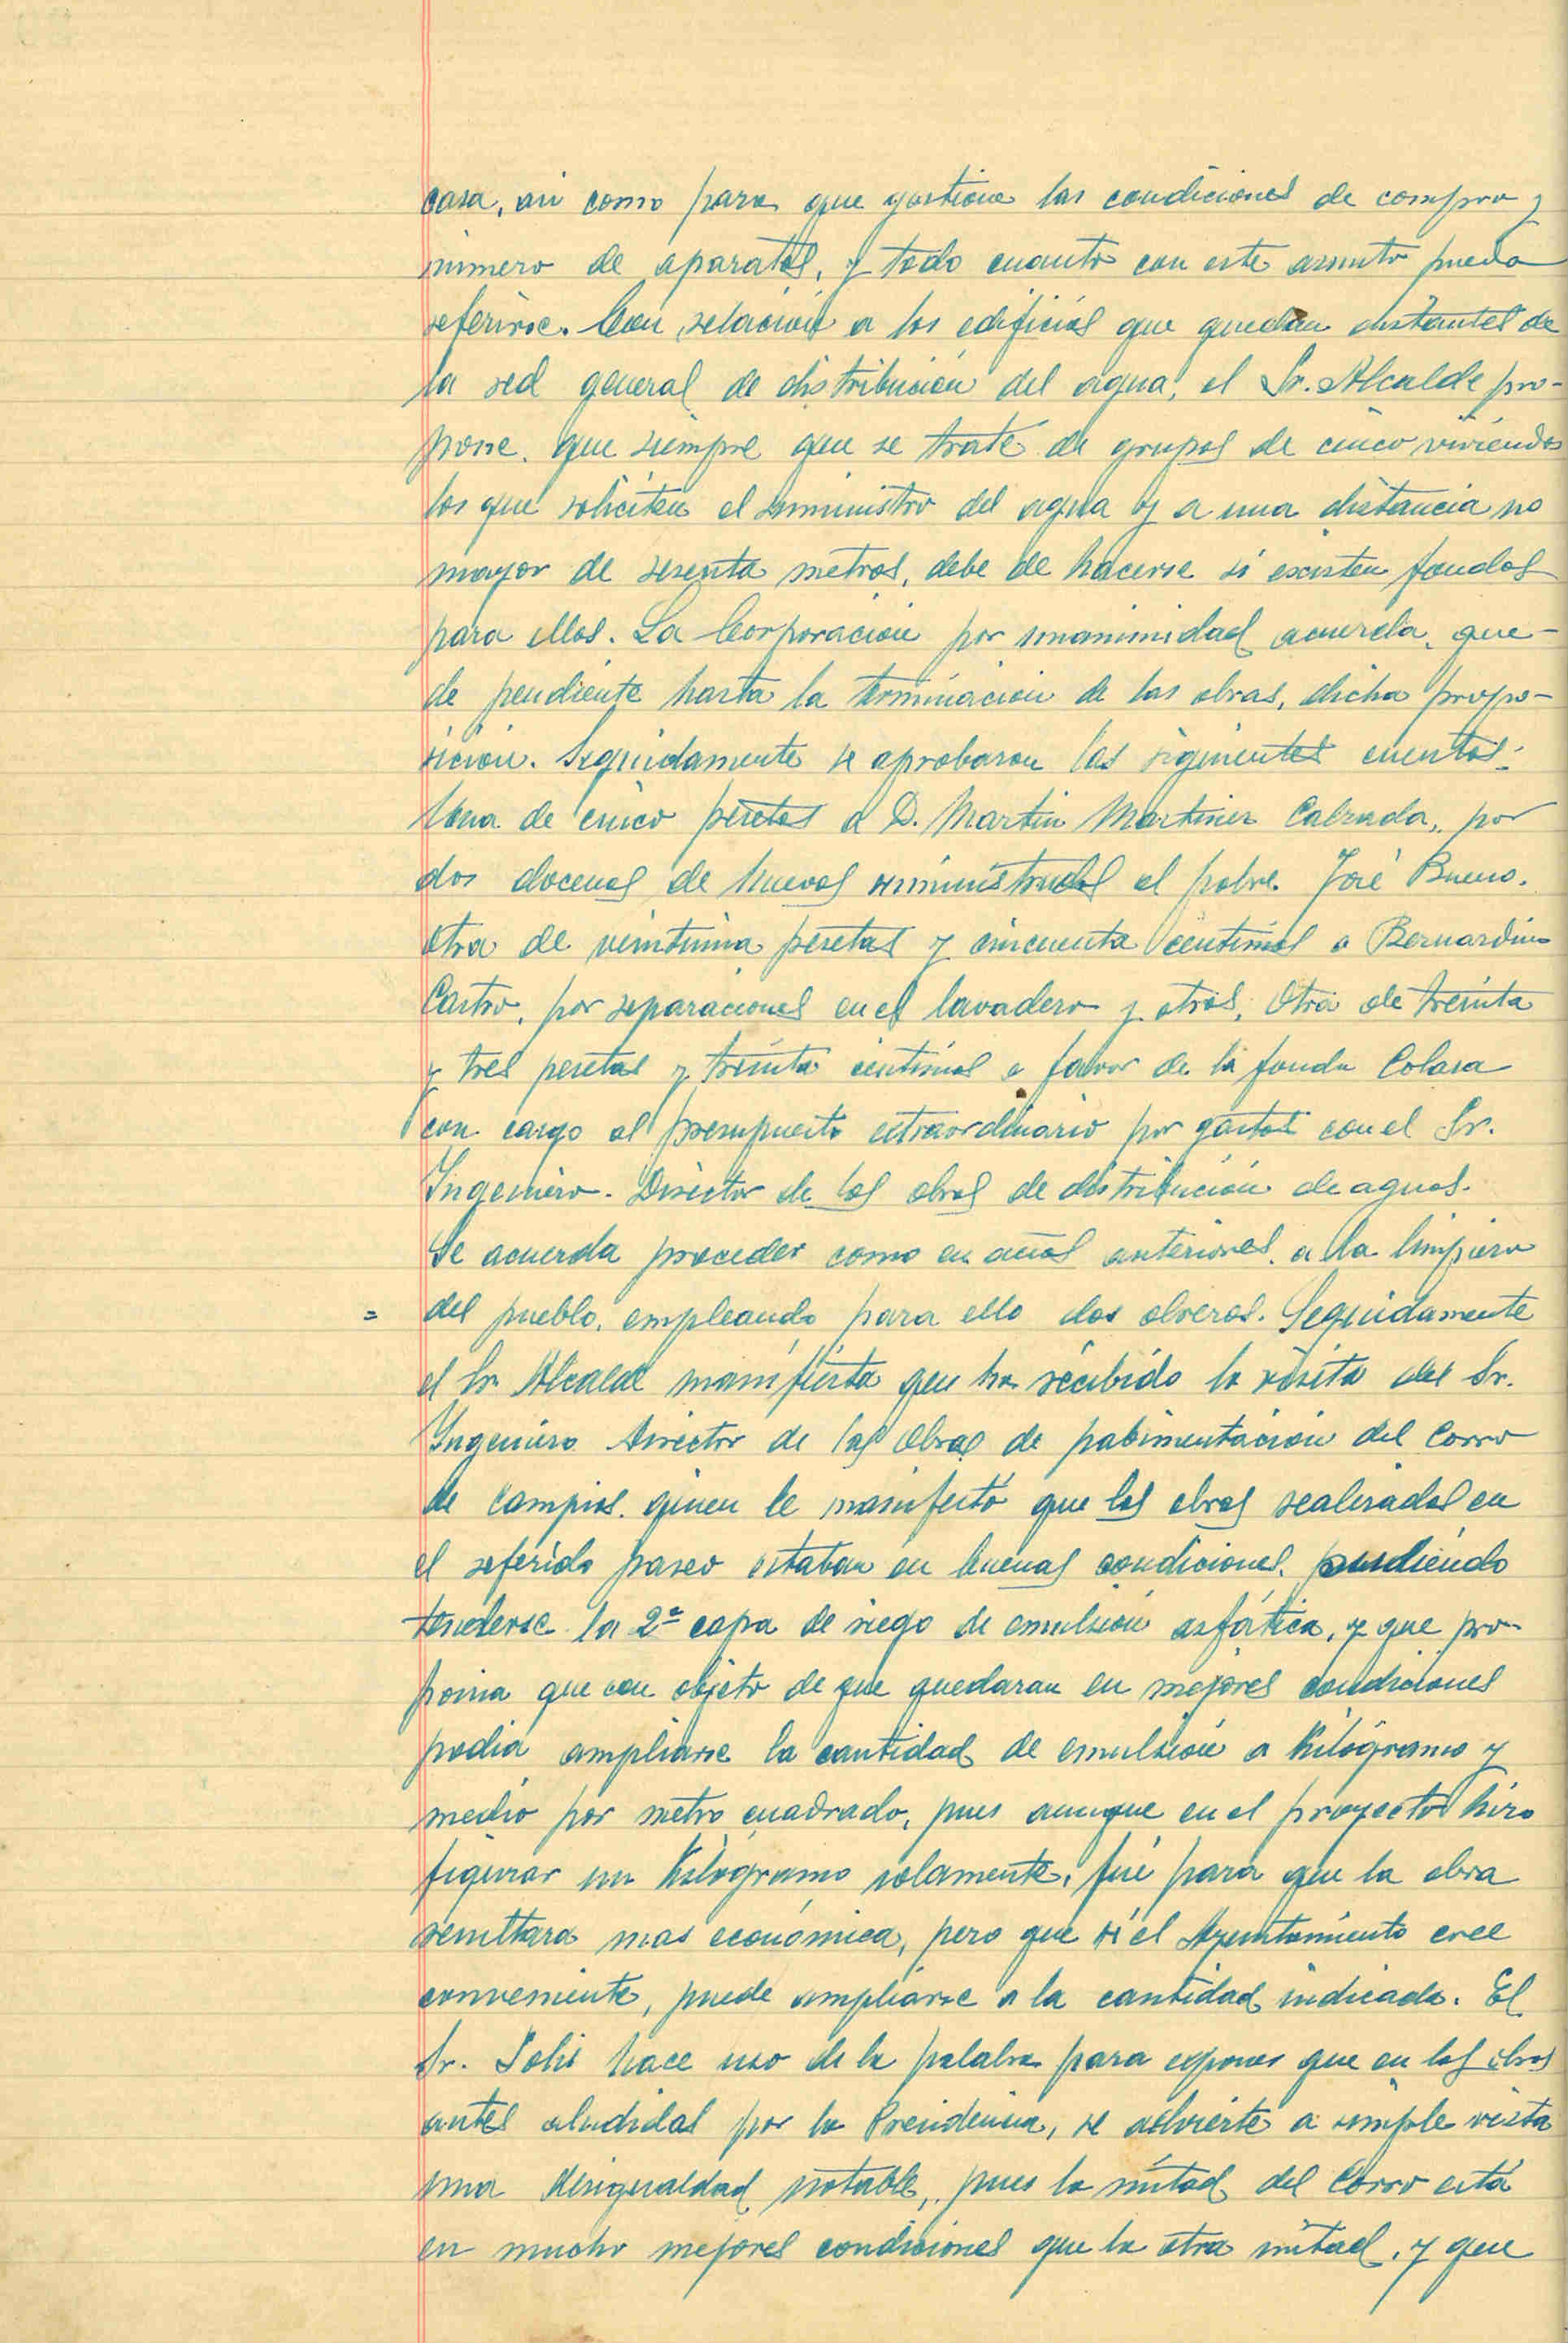 casa, asi como para que gestione las condiciones de compra y
número de aparatos, y todo cuanto con este asunto pueda
referirse. Con relación a los edificios que quedan distantes de
la red general de distribución del agua, el Sr. Alcalde pro-
pone, que siempre que se trate de grupos de cinco viviendas
los que soliciten el suministro del agua y a una distancia no
mayor de sesenta metros, debe de hacerse si existen fondos
para ellos. La Corporación por unanimidad acuerda, que-
de pendiente hasta la terminación de las obras, dicha propo-
sición. Seguidamente se aprobaron las siguientes cuentas:
Una de cinco pesetas a D. Martin Martinez Calzada, por
dos docenas de huevos suministrados al pobre José Bueno.
Otra de veintuna pesetas y cincuenta centimos a Bernardino
Castro, por reparaciones en el lavadero y otros; Otra de treinta
y tres pesetas y treinta centimos a favor de la fonda Colasa
con cargo al presupuesto extraordinario por gastos con el Sr.
Ingeniero-Director de las obras de distribución de aguas.
Se acuerda proceder como en años anteriores a la limpieza
= del pueblo, empleando para ello dos obreros. Seguidamente
el Sr. Alcalde manifiesta que ha recibido la visita del Sr.
Ingeniero Director de las Obras de pabimentación del Corro
de Campios quien le manifestó que las obras realizadas en
el referido paseo estaban en buenas condiciones, pudiendo
tenderse la 2ª capa de riego de emulsión asfática, y que pro-
ponia que con objeto de que quedaran en mejores condiciones
podia ampliarse la cantidad de emulsión a Kilógramo y
medio por metro cuadrado, pues aunque en el proyecto hizo
figurar un Kilógramo solamente, fué para que la obra
resultara mas económica, pero que si el Ayuntamiento cree
conveniente, puede ampliarse a la cantidad indicada. El
Sr. Solis hace uso de la palabra para exponer que en las obras
antes aludidas por la Presidencia, se advierte a simple vista
una desigualdad notable, pues la mitad del Corro está
en mucho mejores condiciones que la otra mitad, y que